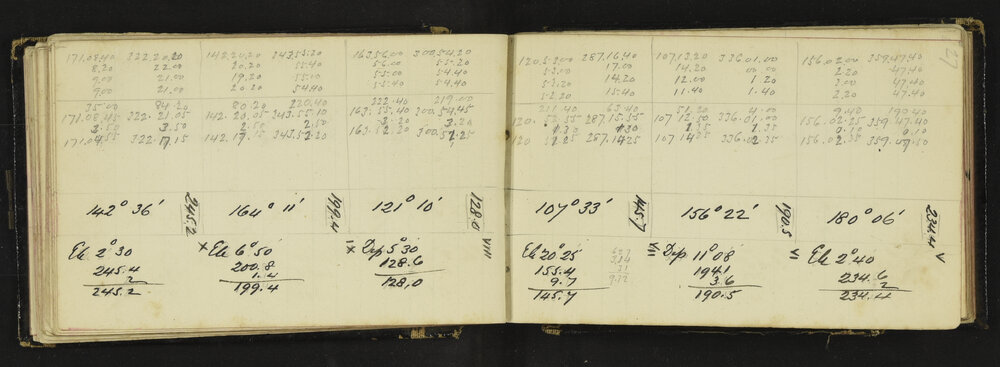 171.08.40 322.20.20 142.20.20 343.55.20 163.56.00 300.54.20
8.20 22.00 20.20 55.40 56.00 55.20
9.00 21.00 19.20 55.00 55.00 54.40
9.00 21.00 20.20 54.40 55.40 54.40
35.00 84.20 80.20 220.40 222.40 219.00
171.08.45 322.21.05 142.20.05 343.55.10 163.55.40 300.54.45
3.50 3.50 2.50 2.50 3.20 3.20
171.04.55 322.17.15 142.17.15 343.52.20 163.52.20 300.51.25
142° 36' 245.2 164° 11' 199.4 121° 10' 128.0
Ele 2°30 x Ele 6°50' Dep 5°30 VIII
245.4 200.8 128.6
2 1.4 128.0
245.2 199.4
287.16.40 107.13.20 336.01.00 156.02.00 359.47.40
17.00 14.20 2.20 47.40
14.20 12.00 1.20 3.00 47.40
52.20 15.40 11.40 1.40 2.20 47.40
211.40 63.40 51.20 4.00 9.40 190.40
120.52.55 287.15.55 107.12.50 336.01.00 156.02.25 359.47.40
1.30 1.30 1.35 1.35 0.10 0.10
287.14.25 107.14.25 336.02.35 156.02.35 359.47.50
107° 33' 145.7 156° 22' 190.5 180° 06' 234.4 V
Ele 20°25 Dep 11°08' Ele 2°40
155.4 194.1 234.6
9.7 3.6 2
145.7 190.5 234.4